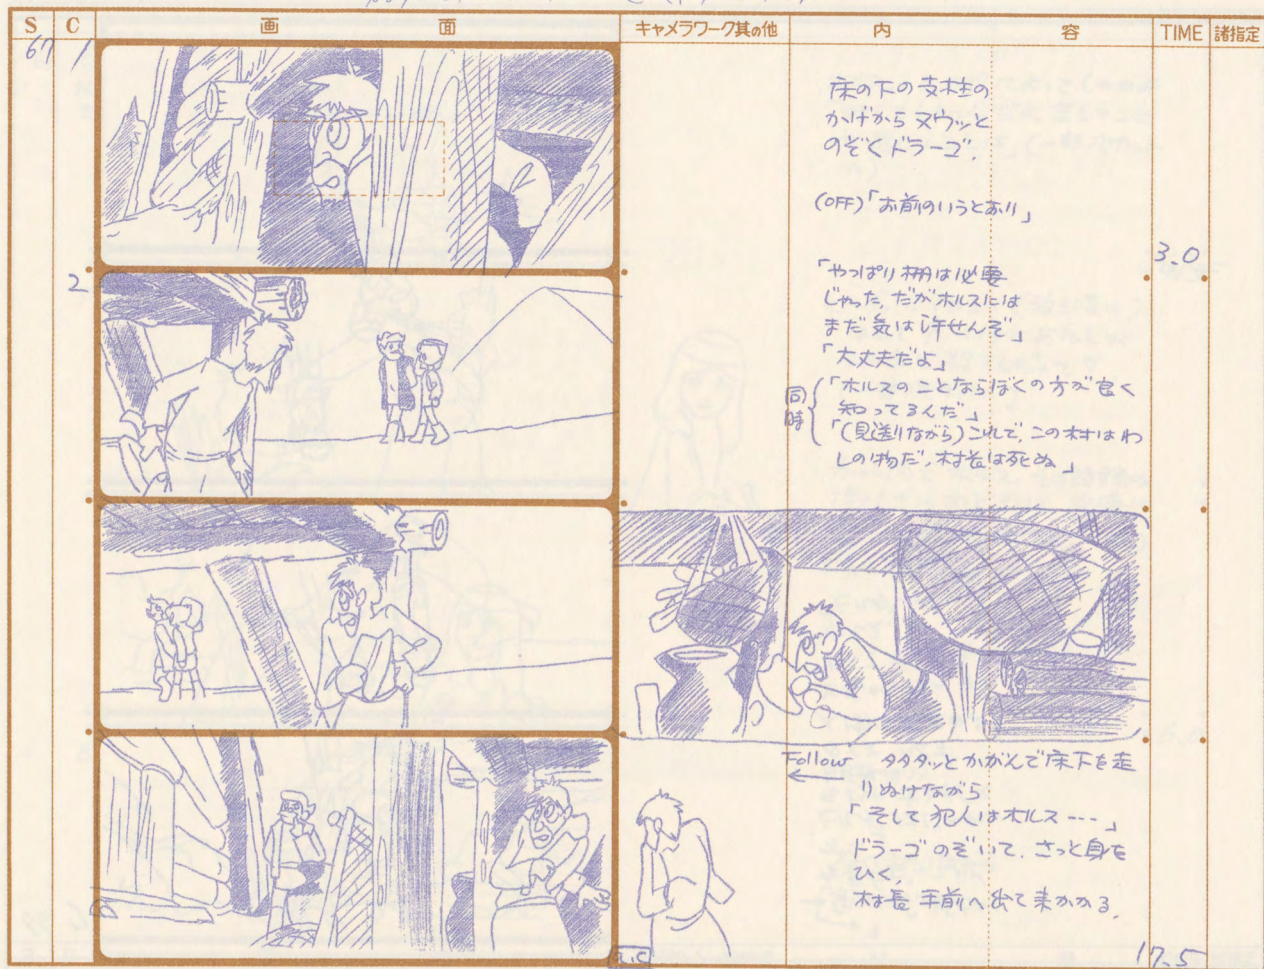 S C 画 面 キャメラワーク其の他 内 容 TIME 諸指定
67 1
床の下の支柱の
かげからヌウッと
のぞくドラーゴ.
(OFF)「お前のいうとおり」
3_0
2
「やっぱり柵は必要
じゃった、だがホルスには
まだ気は許せんぞ」
「大丈夫だよ」
同時
「ホルスのことならぼくの方が良く
知ってるんだ」
「(見送りながら)これで、この村はわ
しの物だ、村長は死ぬ」
Follow タタタッとかがんで床下を走
りぬけながら
「そして犯人はホルス---」
ドラーゴのぞいて、さっと身を
ひく.
村長手前へ出て来かかる.
17_5